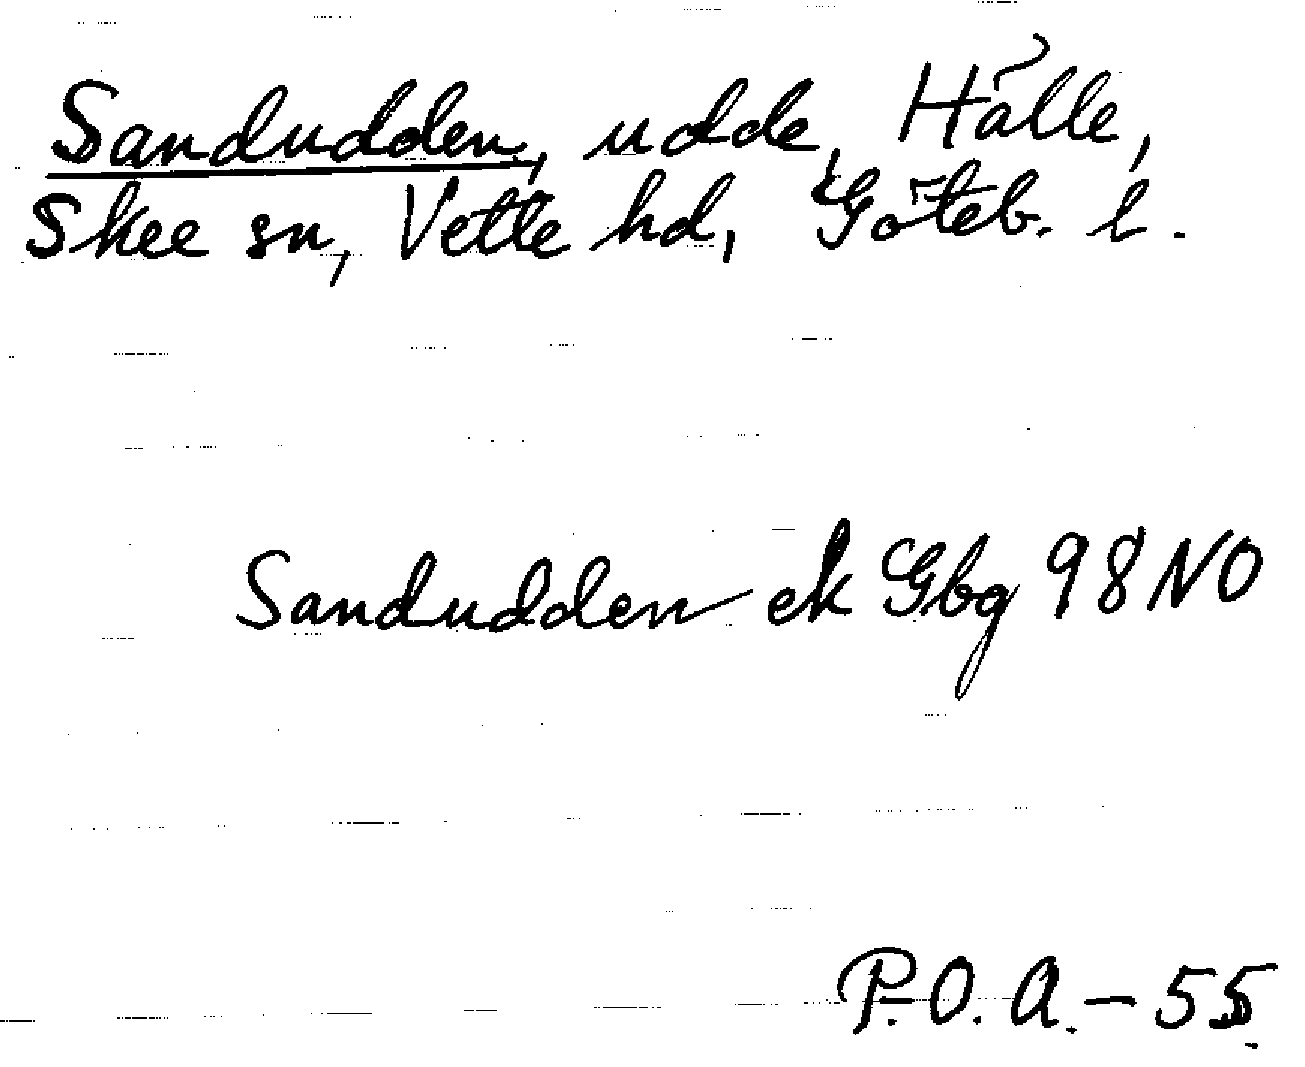 Sandudden, udde, Hålle,
Skee sn, Vette hd, Göteb. l.
Sandudden ek Gbg 98 NO
P.O.A. - 55